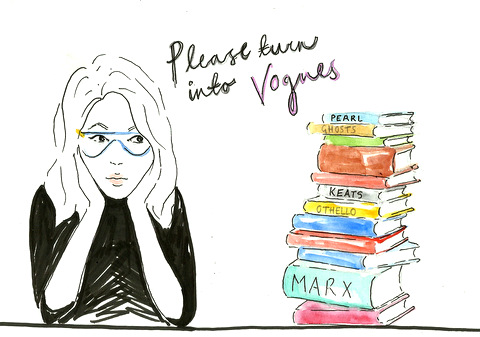 Please turn
into Vogues
PEARL
GHOSTS
KEATS
OTHELLO
MARX